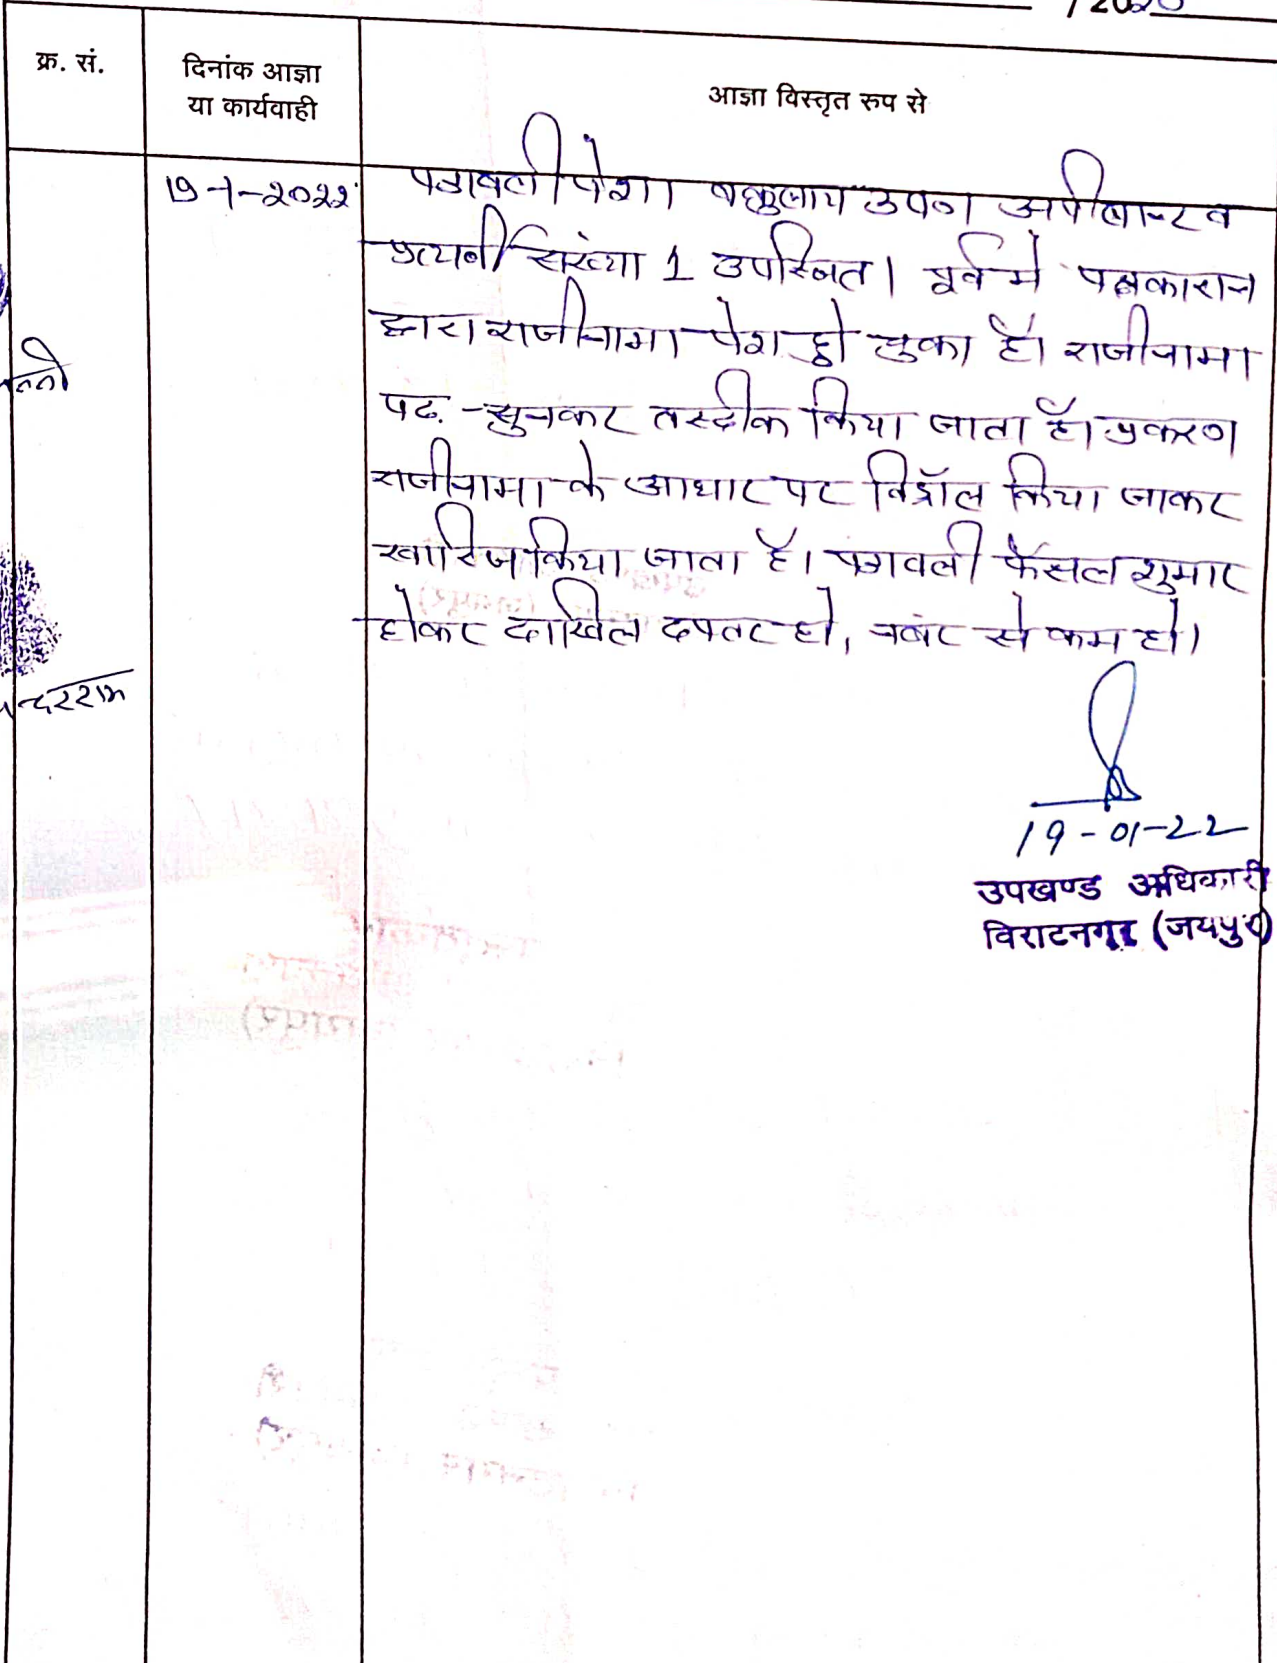 /2020
क्र. सं.
दिनांक आज्ञा
या कार्यवाही
आज्ञा विस्तृत रुप से
19-1-2022 पत्रावली पेश। वकुलाय उपण अपीलान्ट व
प्रत्यर्थी संख्या 1 उपस्थित। पूर्व में पक्षकारान
द्वारा राजीनामा पेश हो चुका है। राजीनामा
पढ़-सुनकर तस्दीक किया जाता है। प्रकरण
राजीनामा के आधार पर विड्रॉल किया जाकर
खारिज किया जाता है। पत्रावली फैसल शुमार
होकर दाखिल दफ्तर हो, नबंर से कम हो।
19-01-22
उपखण्ड अधिकारी
विराटनगर (जयपुर)